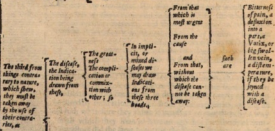 The third from
things contra-
ry to nature,
which shew,
they must be
taken away
by the use of
their contra-
ries, as
The disease,
the indica-
tion being
drawn from
thesis,
The great-
nesse
The compli-
cation or
commixti-
on with
others, so
In impli-
cit, or
mixed di-
seases we
may draw
indicati-
ons from
these three
heads,
From that
which is
most urgent
From the
cause
and
From that,
without
which the
disease can-
not be taken
away:
such
are
Bitternesse
of pain, a
defluxion
into a
part, a
Varix, or
the swol-
len vein,
a distem-
perature,
if they be
joyned
with a
disease.